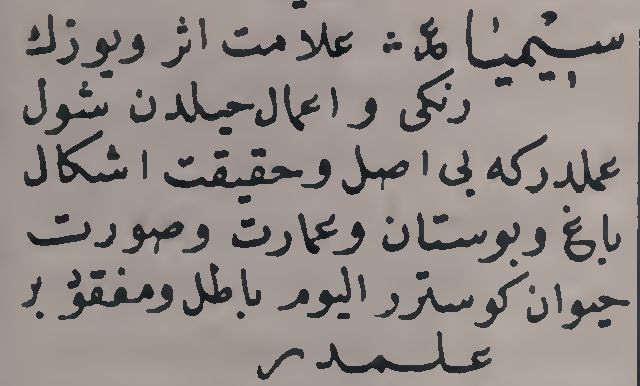 سيميا عد علامت اثر ويوزك
رنكى و اعمال حيلدن شول
عملدركه بى اصل وحقيقت اشكال
باغ وبوستان وعمارت وصورت
حيوان كوسترر اليوم باطل ومفقود بر
علمدر